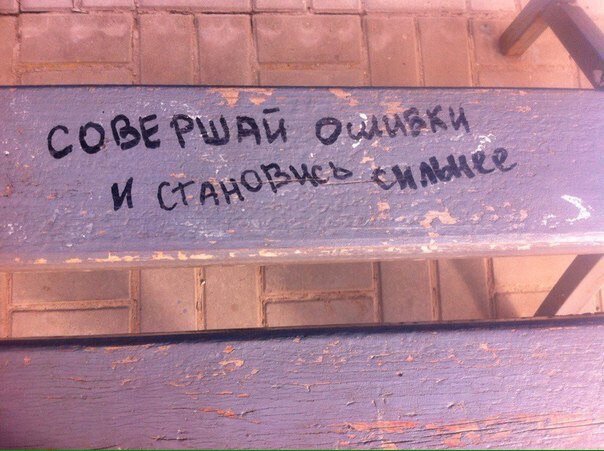 СОВЕРШАЙ ОШИБКИ
И СТАНОВИСЬ СИЛЬНЕЕ